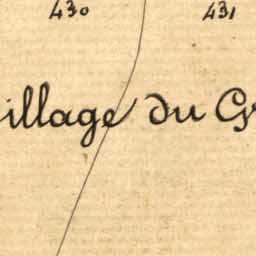 430 431
illage du G